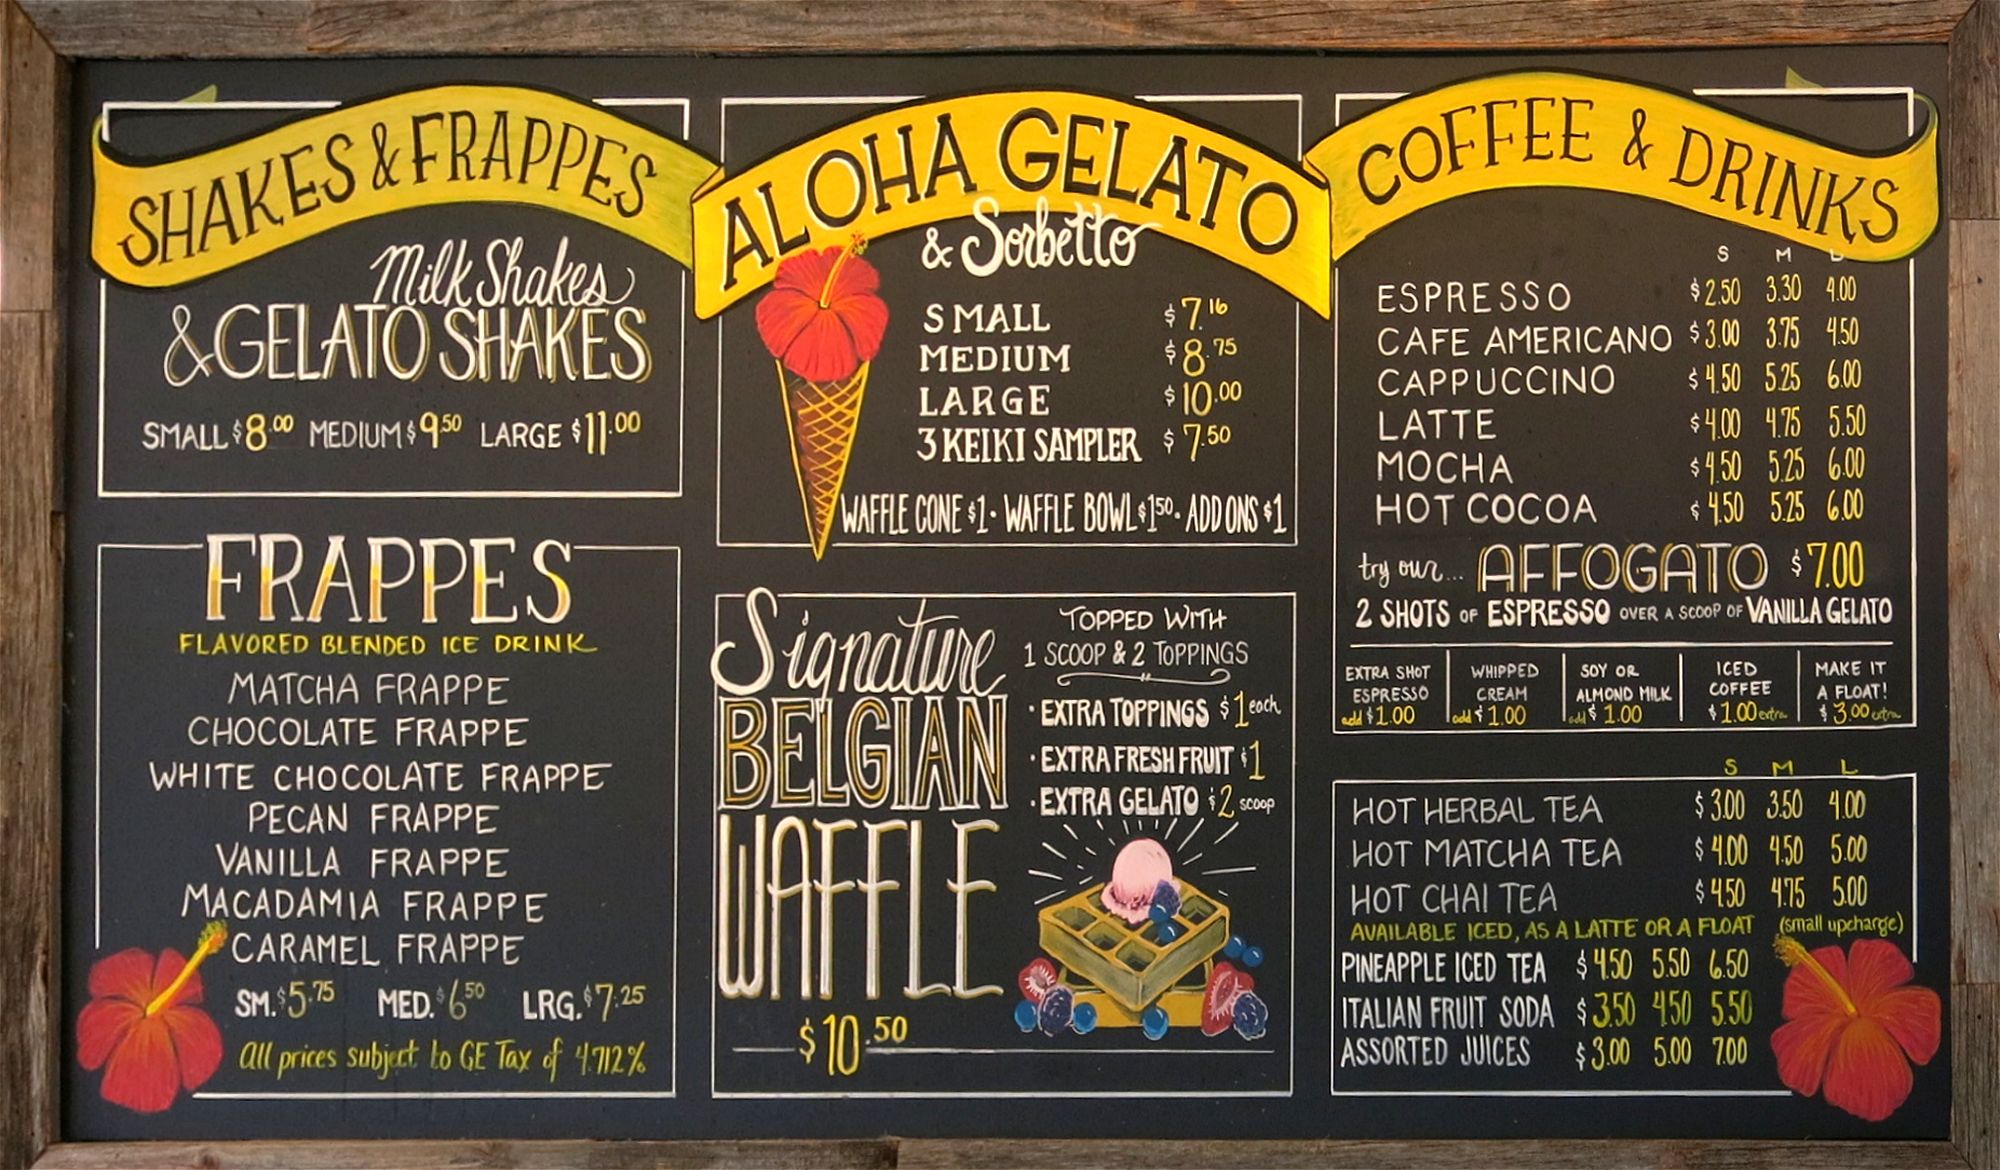 SHAKES & FRAPPES
Milk Shakes
& GELATO SHAKES
SMALL $8.00 MEDIUM $9.50 LARGE $11.00
FRAPPES
FLAVORED BLENDED ICE DRINK
MATCHA FRAPPE
CHOCOLATE FRAPPE
WHITE CHOCOLATE FRAPPE
PECAN FRAPPE
VANILLA FRAPPE
MACADAMIA FRAPPE
CARAMEL FRAPPE
SM. $5.75 MED. $6.50 LRG. $7.25
All prices subject to GE Tax of 4.712%
ALOHA GELATO
& Sorbetto
SMALL $7.16
MEDIUM $8.75
LARGE $10.00
3 KEIKI SAMPLER $7.50
WAFFLE CONE $1 • WAFFLE BOWL $1.50 • ADD ONS $1
Signature
BELGIAN
WAFFLE
$10.50
TOPPED WITH
1 SCOOP & 2 TOPPINGS
• EXTRA TOPPINGS $1 each
• EXTRA FRESH FRUIT $1
• EXTRA GELATO $2 scoop
COFFEE & DRINKS
S M L
ESPRESSO $2.50 3.30 4.00
CAFE AMERICANO $3.00 3.75 4.50
CAPPUCCINO $4.50 5.25 6.00
LATTE $4.00 4.75 5.50
MOCHA $4.50 5.25 6.00
HOT COCOA $4.50 5.25 6.00
try our... AFFOGATO $7.00
2 SHOTS OF ESPRESSO OVER A SCOOP OF VANILLA GELATO
EXTRA SHOT
ESPRESSO
add $1.00
WHIPPED
CREAM
add $1.00
SOY OR
ALMOND MILK
add $1.00
ICED
COFFEE
$1.00 extra
MAKE IT
A FLOAT!
$3.00 extra
S M L
HOT HERBAL TEA $3.00 3.50 4.00
HOT MATCHA TEA $4.00 4.50 5.00
HOT CHAI TEA $4.50 4.75 5.00
AVAILABLE ICED, AS A LATTE OR A FLOAT (small upcharge)
PINEAPPLE ICED TEA $4.50 5.50 6.50
ITALIAN FRUIT SODA $3.50 4.50 5.50
ASSORTED JUICES $3.00 5.00 7.00